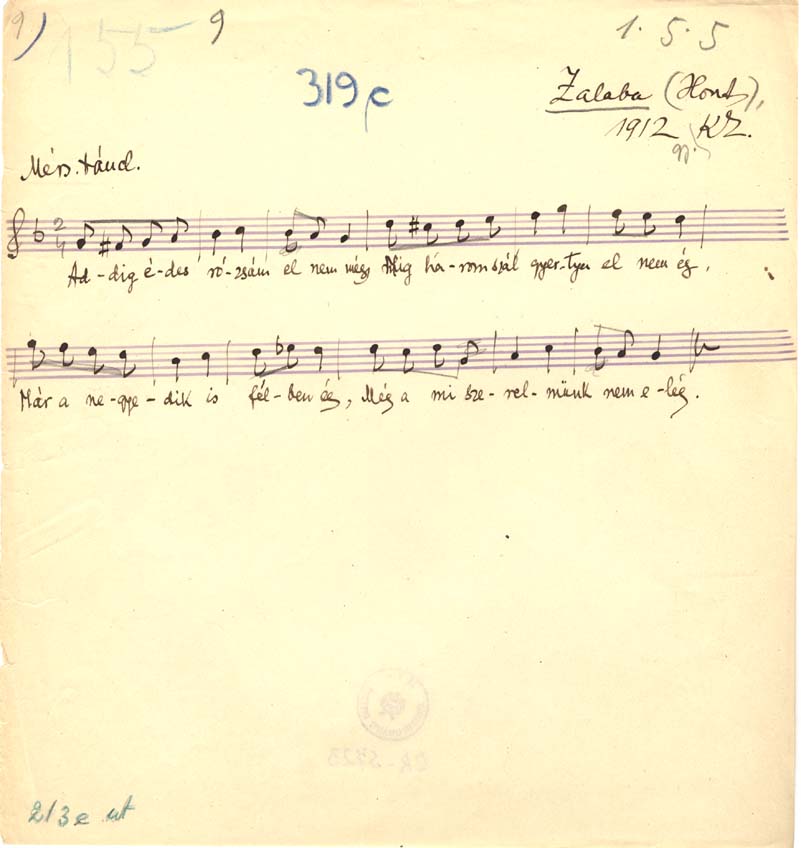 9) 155 9 1.5.5
319c
Zalaba (Hont),
1912 KZ.
gy.
Mérs. tánd.
2/4
Ad-dig é-des ró-zsám el nem mégy Míg há-rom szál gyer-tya el nem ég,
Már a ne-gye-dik is fél-ben ég, Még a mi sze-rel-münk nem e-lég.
2/3e